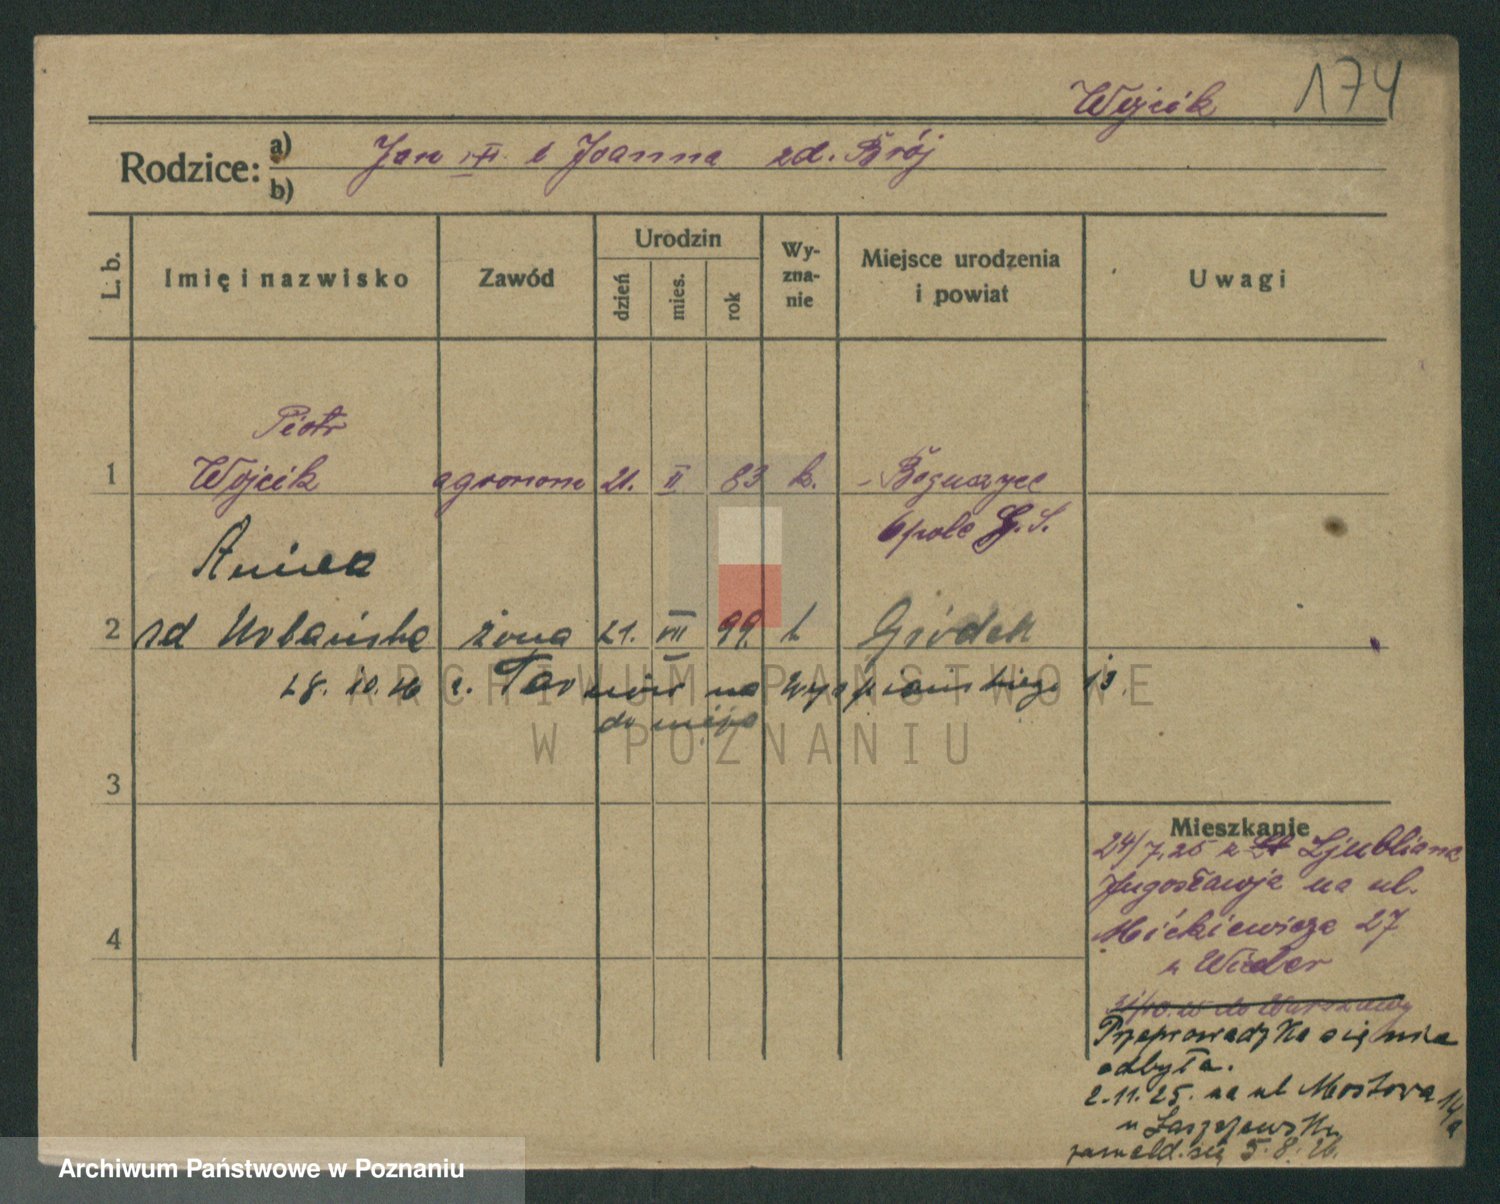 174
Wójcik
Rodzice:
a) Jan i Joanna zd. Brój
b)
L. b.
Imię i nazwisko
Zawód
Urodzin
dzień
mies.
rok
Wy-
zna-
nie
Miejsce urodzenia
i powiat
Uwagi
Piotr
1 Wójcik agronom 21. II 83 k. Boguszyce
Opole G. S.
Aniela
2 zd Urbańska żona 21. VII 99. k Gródek
28. 10. 26 z Tarnów na Wyspiańskiego 13.
do męża
3
4
Mieszkanie
24/7.25 z Ljubliana
Jugosławja na ul.
Mickiewicza 27
u Wieder
31/10. do Warszawy
Przeprowadzka się nie
odbyła.
2.11.25. na ul Mostowa 14/a
u
zameld. się 5.8.26.
ARCHIWUM PAŃSTWOWE
W POZNANIU
Archiwum Państwowe w Poznaniu